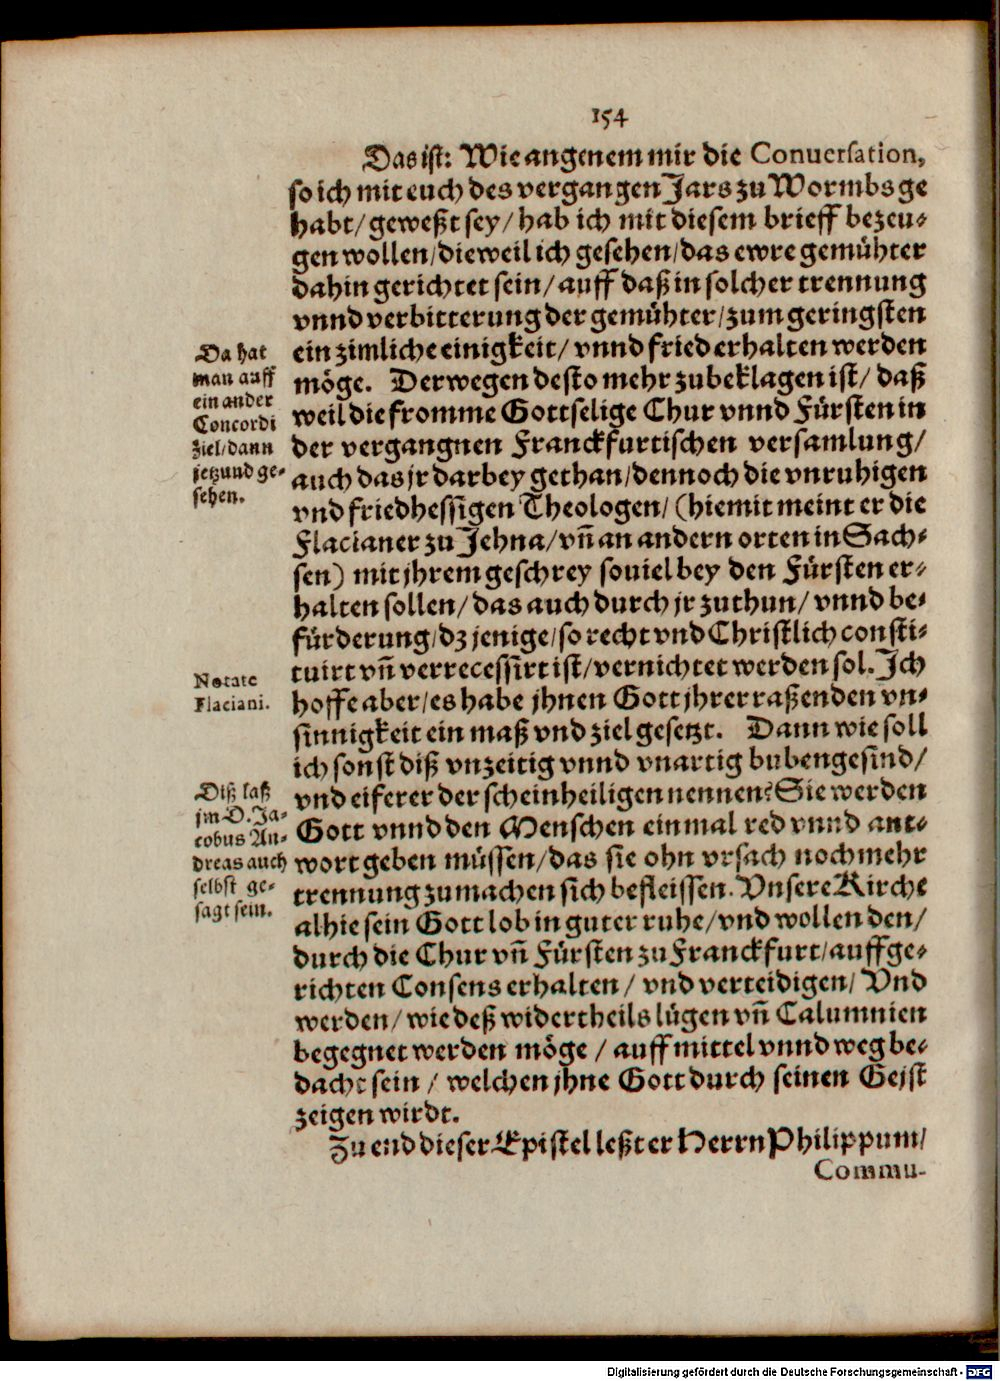 154
Das ist: Wie angenem mir die Conuersation,
so ich mit euch des vergangen Jars zu Wormbs ge
habt/ geweßt sey/ hab ich mit diesem brieff bezeu-
gen wollen/ dieweil ich gesehen/ das ewre gemühter
dahin gerichtet sein/ auff daß in solcher trennung
vnnd verbitterung der gemühter/ zum geringsten
ein zimliche einigkeit/ vnnd fried erhalten werden
möge. Derwegen desto mehr zubeklagen ist/ daß
weil die fromme Gottselige Chur vnnd Fürsten in
der vergangnen Franckfurtischen versamlung/
auch das jr darbey gethan/ dennoch die vnruhigen
vnd friedhessigen Theologen/ (hiemit meint er die
Flacianer zu Jehna/ vñ an andern orten in Sach-
sen) mit jhrem geschrey souiel bey den Fürsten er-
halten sollen/ das auch durch jr zuthun/ vnnd be-
fürderung/ dz jenige/ so recht vnd Christlich consti-
tuirt vñ verrecessirt ist/ vernichtet werden sol. Ich
hoffe aber/ es habe jhnen Gott jhrer raßenden vn-
sinnigkeit ein maß vnd ziel gesetzt. Dann wie soll
ich sonst diß vnzeitig vnnd vnartig bubengesind/
vnd eiferer der scheinheiligen nennen? Sie werden
Gott vnnd den Menschen einmal red vnnd ant-
wort geben müssen/ das sie ohn vrsach noch mehr
trennung zumachen sich befleissen. Vnsere Kirche
alhie sein Gott lob in guter ruhe/ vnd wollen den/
durch die Chur vñ Fürsten zu Franckfurt/ auffge-
richten Consens erhalten/ vnd verteidigen/ Vnd
werden/ wie deß widertheils lügen vñ Calumnien
begegnet werden möge/ auff mittel vnnd weg be-
dacht sein/ welchen jhne Gott durch seinen Gejst
zeigen wirdt.
Zu end dieser Epistel leßt er Herrn Philippum/
Commu-
Da hat
man auff
ein ander
Concordi
ziel/ dann
jetzund ge-
sehen.
Notate
Flaciani.
Diß laß
jm D. Ja-
cobus An-
dreas auch
selbst ge-
sagt sein.
Digitalisierung gefördert durch die Deutsche Forschungsgemeinschaft - DFG